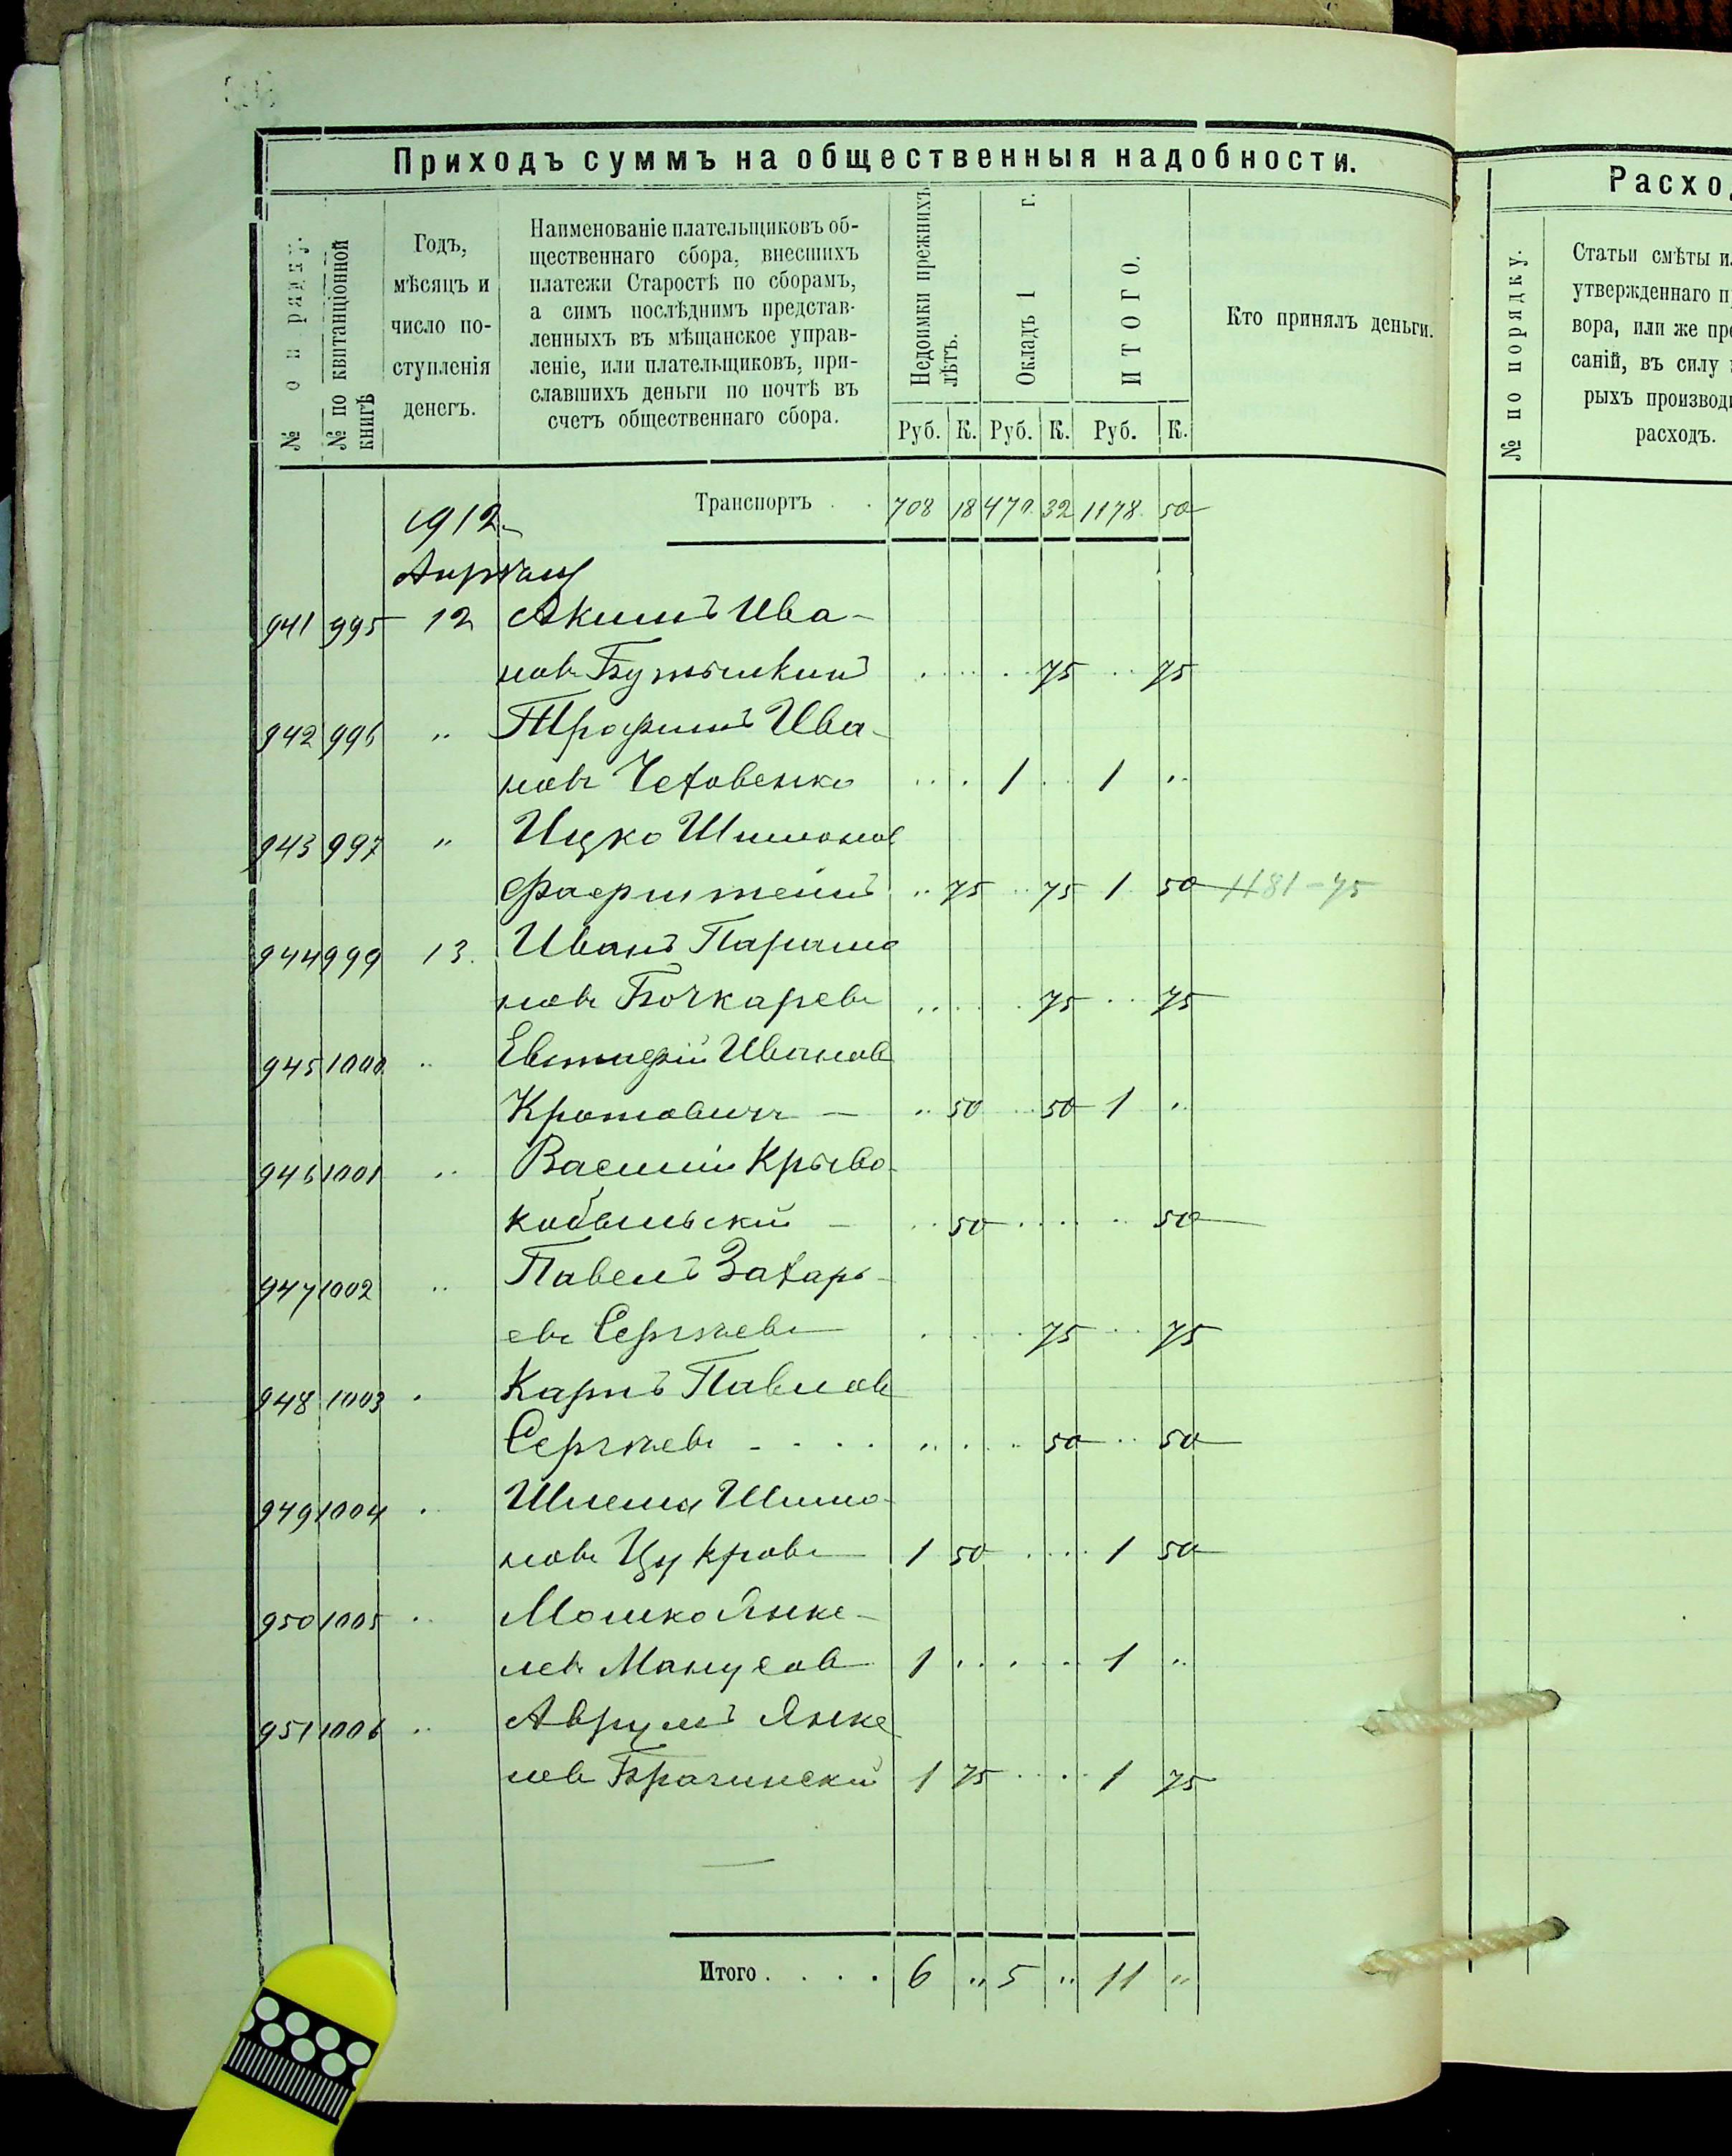 Приходъ суммъ на общественныя надобности.
№ по
№ по квитанціонной книгѣ
Годъ, мѣсяцъ и число поступленія денегъ.
Наименованіе плательщиковъ об-
щественнаго сбора, внесшихъ
платежи Старостѣ по сборамъ,
а симъ послѣднимъ представ-
ленныхъ въ мѣщанское управ-
леніе, или плательщиковъ, при-
славшихъ деньги по почтѣ въ
счетъ общественнаго сбора.
Недоимки прежнихъ лѣтъ.
Окладъ 1 г.
ИТОГО.
Кто принялъ деньги.
Руб. К. Руб. К. Руб. К.
Транспортъ . . 708 18 470 32 1178 50
1912
Апрѣля
941 995 12 Акимъ Ива-
новъ Бутылкинъ 75 75
942 996 " Трофимъ Ива-
новъ Чеховенко 1 1 "
943 997 " Ицко Шимонов
Фаерштейнъ " 75 75 1 50 1181-75
944 999 13. Иванъ Парамо
новъ Бочкаревъ 75 75
945 1000 " Евтихій Иванов
Кротовичъ — " 50 50 1 "
946 1001 " Василій Крыво-
кобыльскій — 50 50
947 1002 " Павелъ Захарь-
евъ Сергѣевъ 75 75
948 1003 " Карпъ Павлов
Сергѣевъ 50 50
949 1004 " Шлема Шимо-
новъ Цукровъ 1 50 1 50
950 1005 " Мошко Янке-
левъ Манусов 1 1 "
951 1006 " Аврумъ Янке
лев Брагинскій 1 75 1 75
Итого . . . . 6 " 5 " 11 "
Расхо
№ по порядку.
Статьи смѣты и
утвержденнаго п
вора, или же пре
саній, въ силу
рыхъ производи
расходъ.